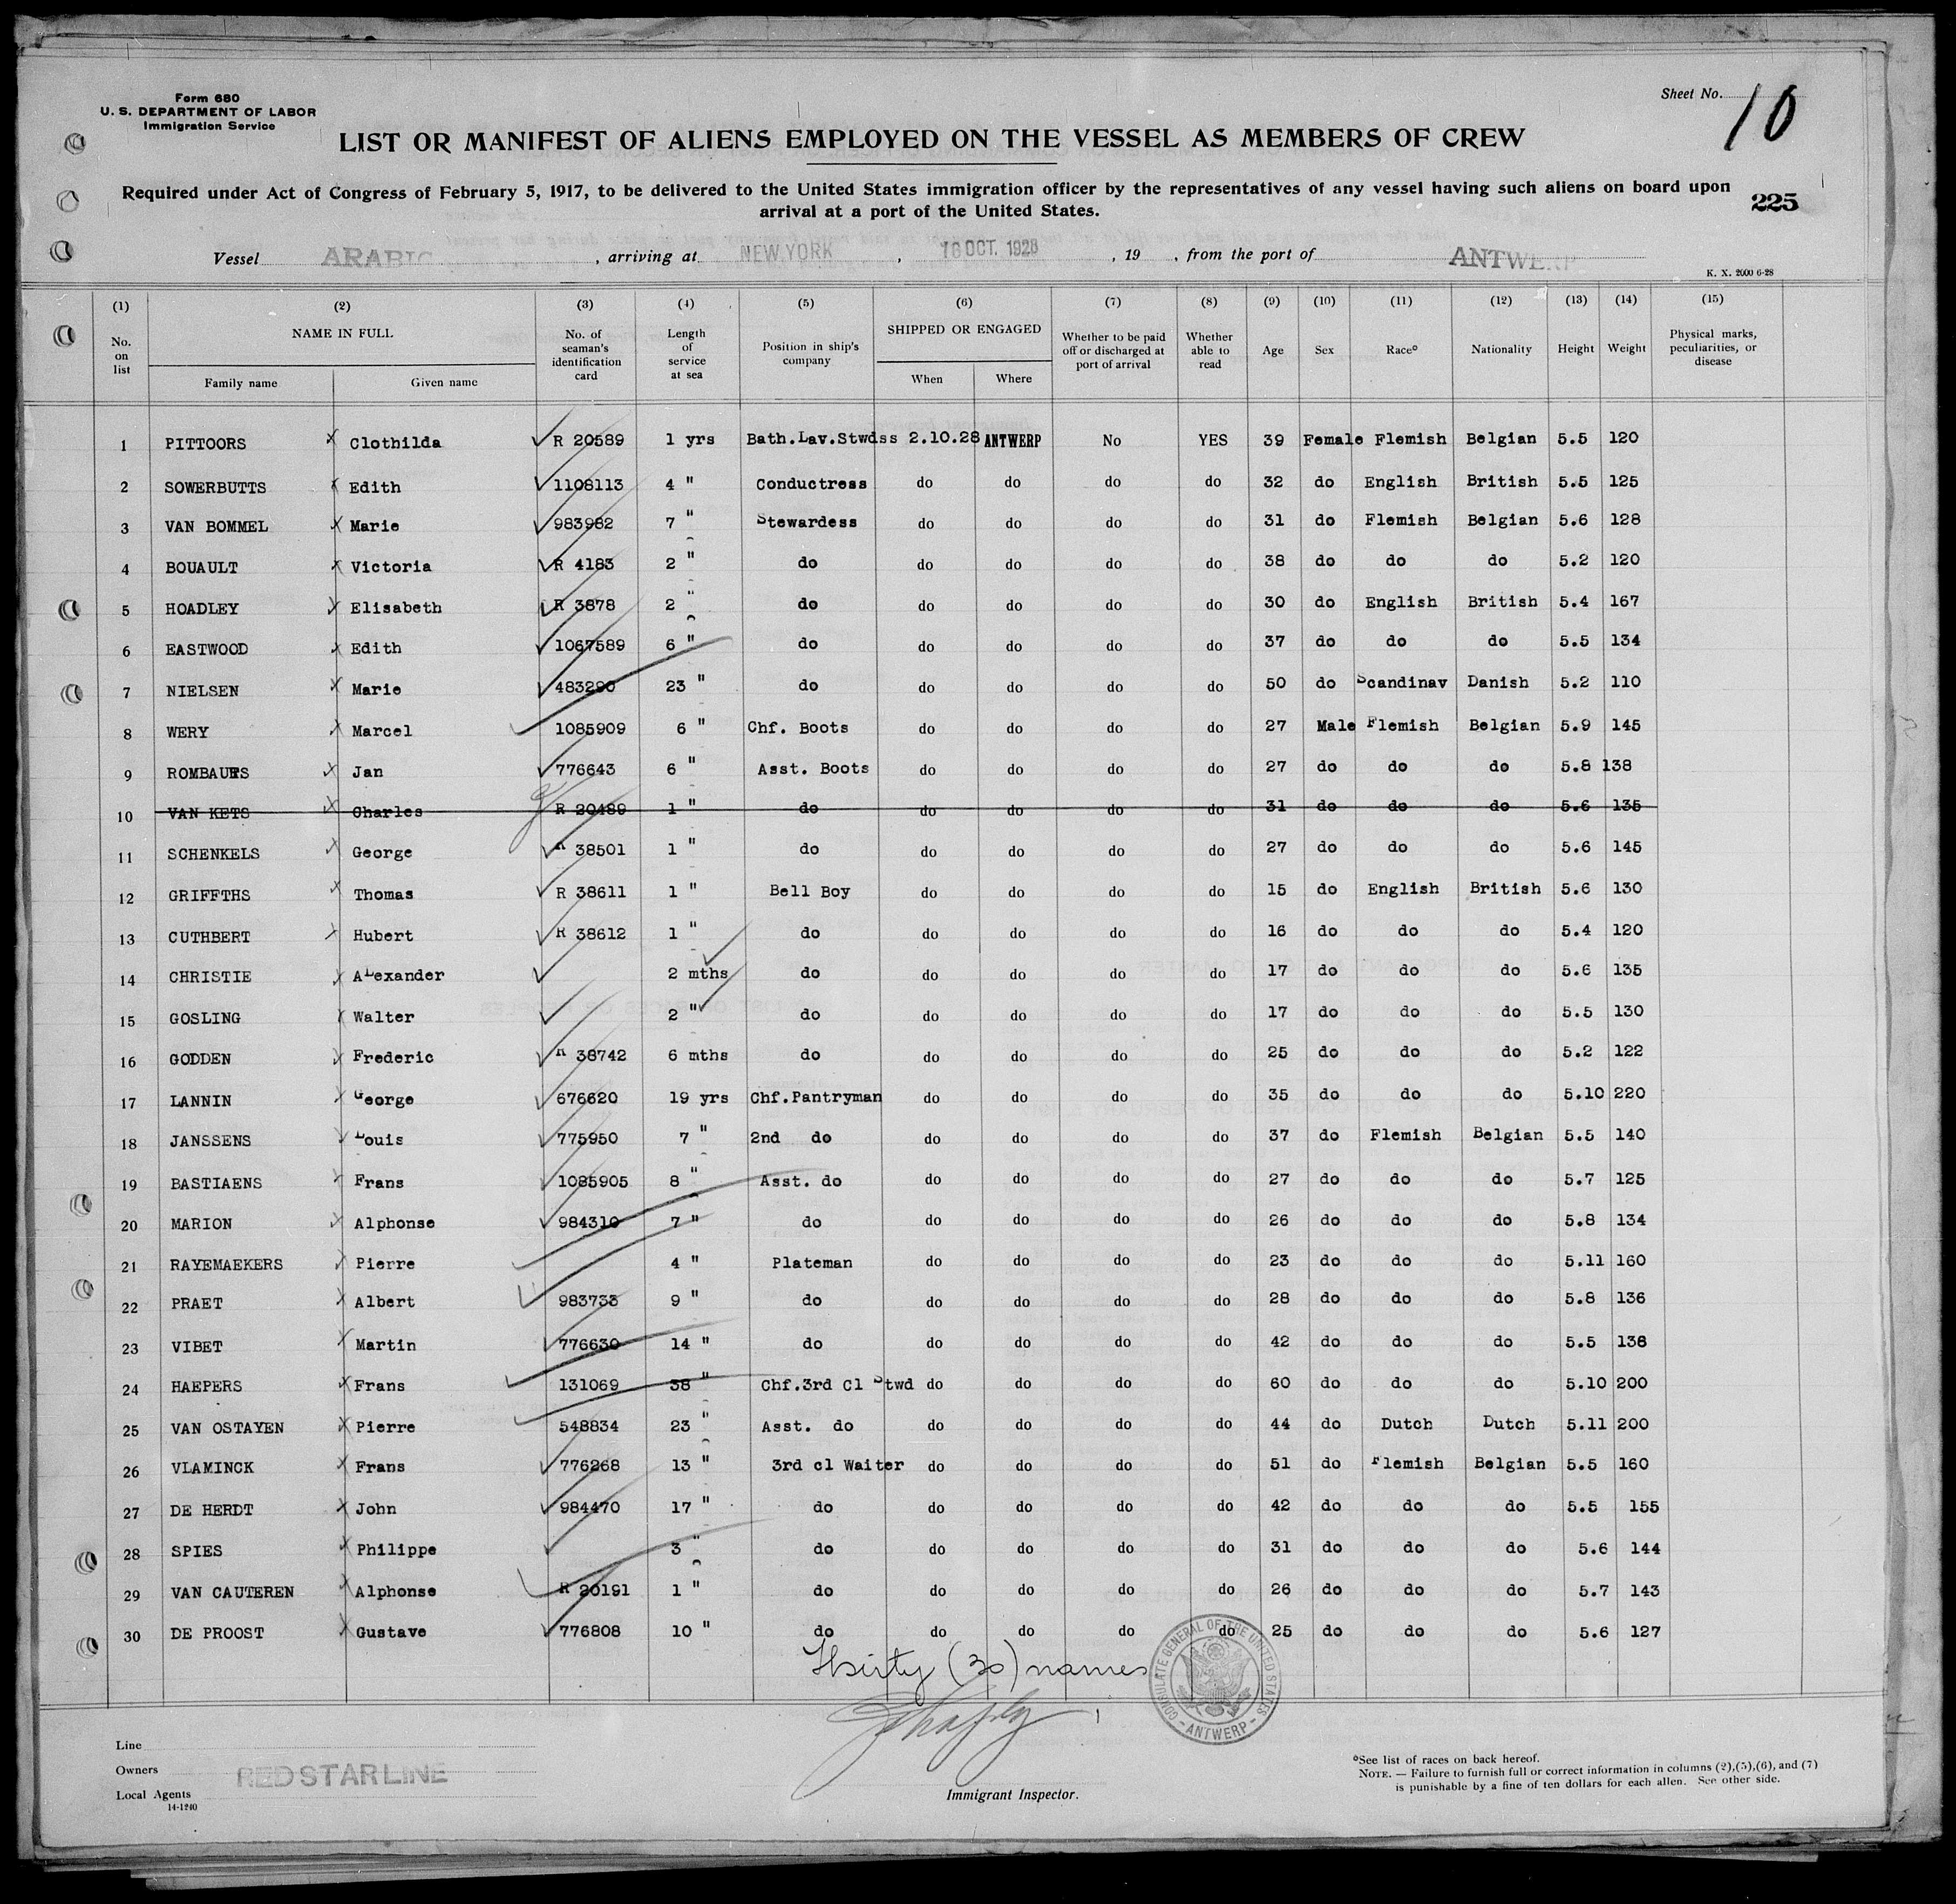 Form 680
U. S. DEPARTMENT OF LABOR
Immigration Service
Sheet No. 10
LIST OR MANIFEST OF ALIENS EMPLOYED ON THE VESSEL AS MEMBERS OF CREW
Required under Act of Congress of February 5, 1917, to be delivered to the United States immigration officer by the representatives of any vessel having such aliens on board upon
arrival at a port of the United States.
225
Vessel ARABIC, arriving at NEW YORK, 16 OCT. 1928, 19 , from the port of ANTWERP
K. X. 2000 6-28
(1) (2) (3) (4) (5) (6) (7) (8) (9) (10) (11) (12) (13) (14) (15)
No. on list NAME IN FULL Family name Given name No. of seaman's identification card Length of service at sea Position in ship's company SHIPPED OR ENGAGED When Where Whether to be paid off or discharged at port of arrival Whether able to read Age Sex Race* Nationality Height Weight Physical marks, peculiarities, or disease
1 PITTOORS Clothilda R 20589 1 yrs Bath.Lav.Stwdss 2.10.28 ANTWERP No YES 39 Female Flemish Belgian 5.5 120
2 SOWERBUTTS Edith 1108113 4 " Conductress do do do do 32 do English British 5.5 125
3 VAN BOMMEL Marie 983982 7 " Stewardess do do do do 31 do Flemish Belgian 5.6 128
4 BOUAULT Victoria R 4183 2 " do do do do do 38 do do do 5.2 120
5 HOADLEY Elisabeth R 3878 2 " do do do do do 30 do English British 5.4 167
6 EASTWOOD Edith 1067589 6 " do do do do do 37 do do do 5.5 134
7 NIELSEN Marie 483290 23 " do do do do do 50 do Scandinav Danish 5.2 110
8 WERY Marcel 1085909 6 " Chf. Boots do do do do 27 Male Flemish Belgian 5.9 145
9 ROMBAUTS Jan 776643 6 " Asst. Boots do do do do 27 do do do 5.8 138
10 VAN KETS Charles R 20489 1 " do do do do do 31 do do do 5.6 135
11 SCHENKELS George R 38501 1 " do do do do do 27 do do do 5.6 145
12 GRIFFTHS Thomas R 38611 1 " Bell Boy do do do do 15 do English British 5.6 130
13 CUTHBERT Hubert R 38612 1 " do do do do do 16 do do do 5.4 120
14 CHRISTIE ALexander 2 mths do do do do do 17 do do do 5.6 135
15 GOSLING Walter 2 " do do do do do 17 do do do 5.5 130
16 GODDEN Frederic R 38742 6 mths do do do do do 25 do do do 5.2 122
17 LANNIN George 676620 19 yrs Chf.Pantryman do do do do 35 do do do 5.10 220
18 JANSSENS Louis 775950 7 " 2nd do do do do do 37 do Flemish Belgian 5.5 140
19 BASTIAENS Frans 1085905 8 " Asst. do do do do do 27 do do do 5.7 125
20 MARION Alphonse 984310 7 " do do do do do 26 do do do 5.8 134
21 RAYEMAEKERS Pierre 4 " Plateman do do do do 23 do do do 5.11 160
22 PRAET Albert 983733 9 " do do do do do 28 do do do 5.8 136
23 VIBET Martin 776630 14 " do do do do do 42 do do do 5.5 138
24 HAEPERS Frans 131069 38 " Chf.3rd Cl Stwd do do do do 60 do do do 5.10 200
25 VAN OSTAYEN Pierre 548834 23 " Asst. do do do do do 44 do Dutch Dutch 5.11 200
26 VLAMINCK Frans 776268 13 " 3rd cl Waiter do do do do 51 do Flemish Belgian 5.5 160
27 DE HERDT John 984470 17 " do do do do do 42 do do do 5.5 155
28 SPIES Philippe 3 " do do do do do 31 do do do 5.6 144
29 VAN CAUTEREN Alphonse R 20191 1 " do do do do do 26 do do do 5.7 143
30 DE PROOST Gustave 776808 10 " do do do do do 25 do do do 5.6 127
Thirty (30) names
CONSULATE GENERAL OF THE UNITED STATES - ANTWERP -
Line
Owners RED STAR LINE
Local Agents
14-1240
Immigrant Inspector.
*See list of races on back hereof.
NOTE. — Failure to furnish full or correct information in columns (2),(5),(6), and (7)
is punishable by a fine of ten dollars for each alien. See other side.